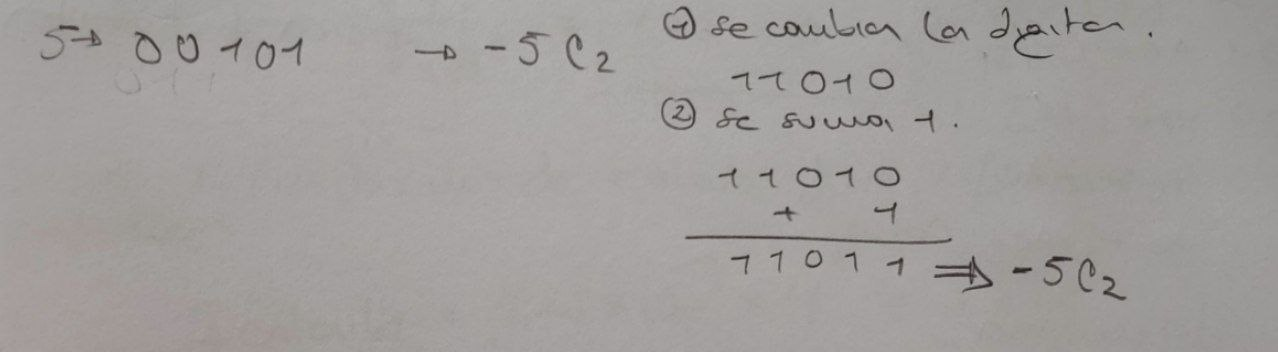 5→ 00101 → -5 C2
① se cambian los digitos.
11010
② se suma 1.
11010
+ 1
11011 ⇒ -5C2